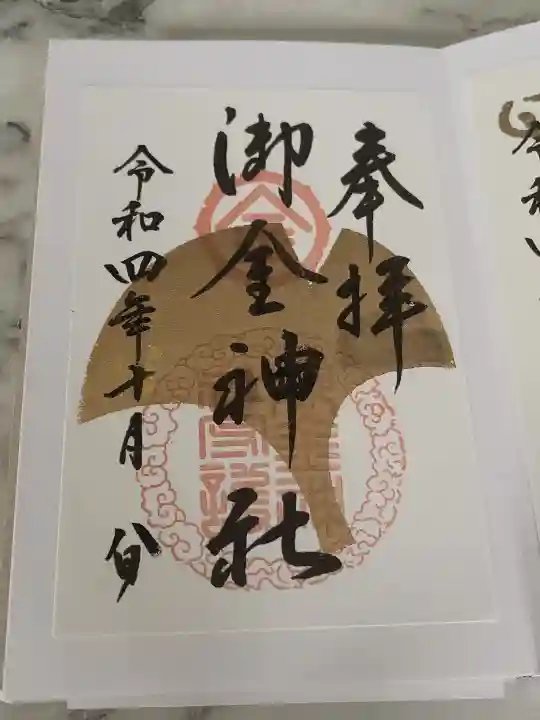 奉拝
御金神社
令和四年十月八日
令和